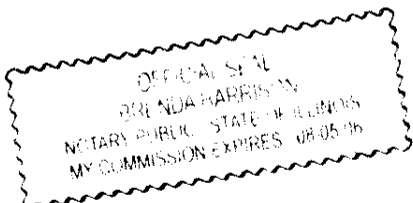 OFFICIAL SEAL
BRENDA HARRISON
NOTARY PUBLIC, STATE OF ILLINOIS
MY COMMISSION EXPIRES 08/05/06